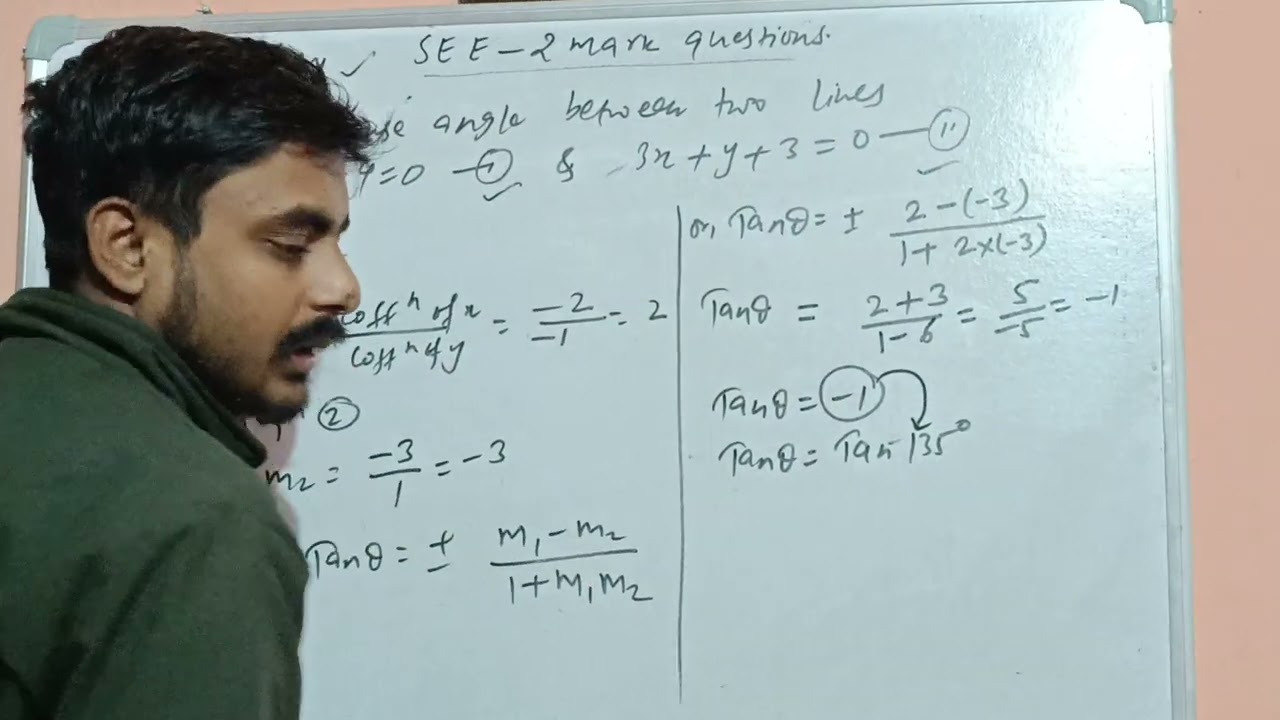 ✓ SEE - 2 mark questions.
angle between two lines
y = 0 — (i) & 3x + y + 3 = 0 — (ii)
coffⁿ of x / coffⁿ of y = -2/-1 = 2
②
m₂ = -3/1 = -3
Tanθ = ± (m₁ - m₂)/(1 + m₁m₂)
or, Tanθ = ± (2 - (-3))/(1 + 2×(-3))
Tanθ = (2 + 3)/(1 - 6) = 5/-5 = -1
Tanθ = -1
Tanθ = Tan 135°